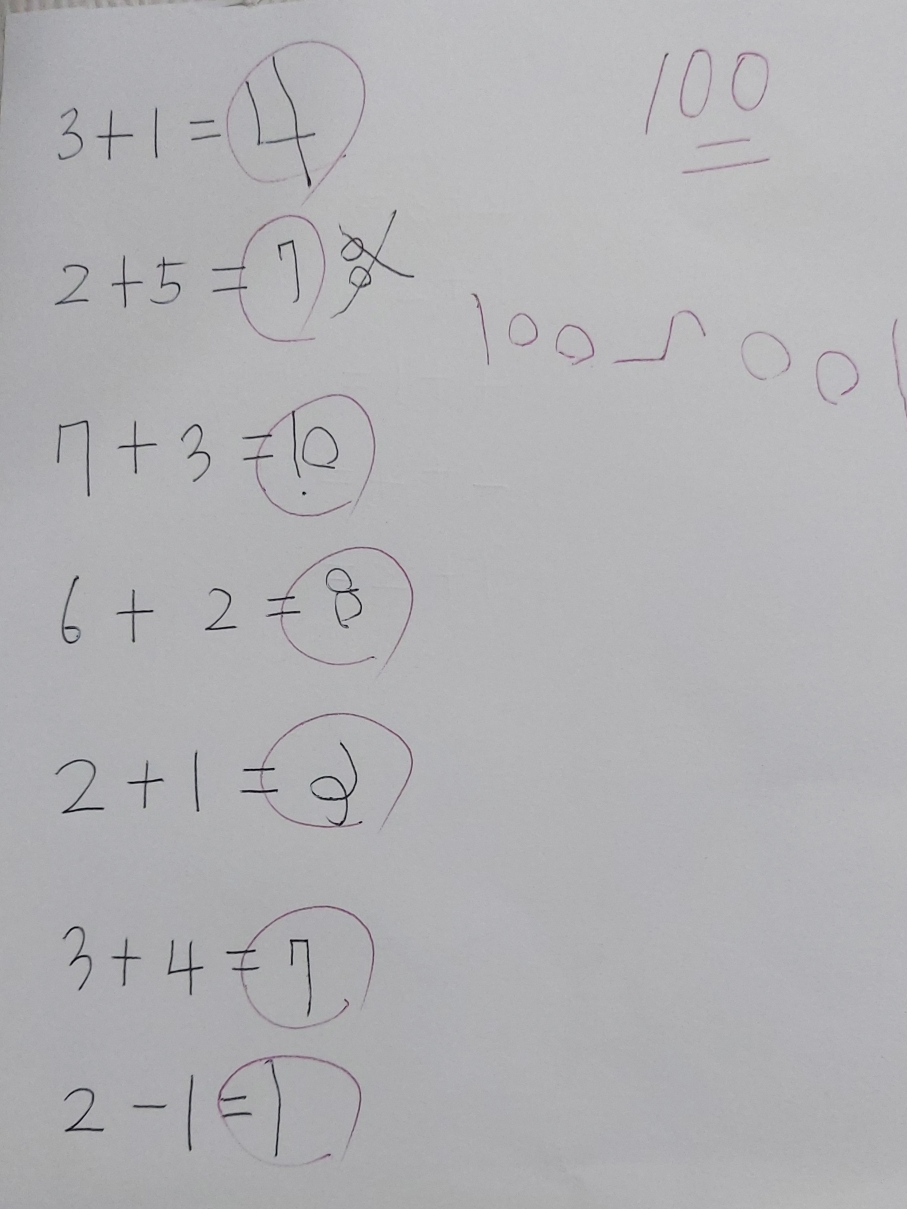 3+1=4
100
2+5=7
100
001
7+3=10
6+2=8
2+1=2
3+4=7
2-1=1